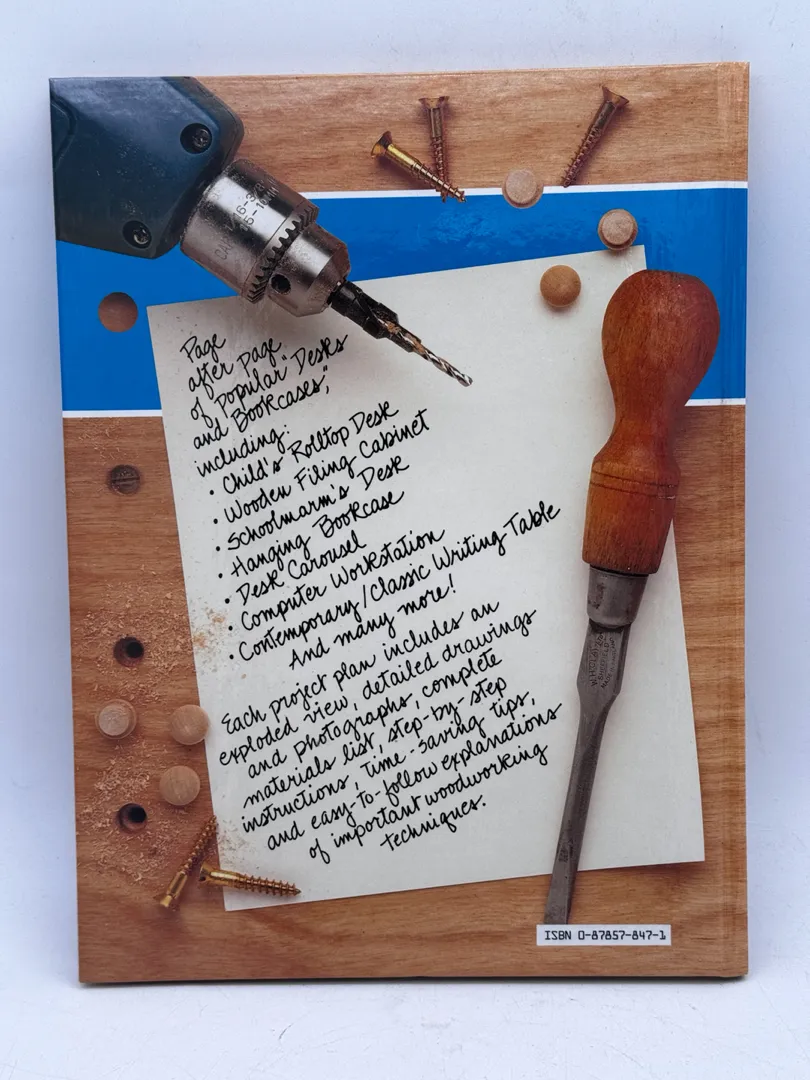 Page
after page
of popular "Desks
and Bookcases",
including:
• Child's Rolltop Desk
• Wooden Filing Cabinet
• Schoolmarm's Desk
• Hanging Bookcase
• Desk Carousel
• Computer Workstation
• Contemporary/Classic Writing Table
And many more!
Each project plan includes an
exploded view, detailed drawings
and photographs, complete
materials list, step-by-step
instructions, time-saving tips,
and easy-to-follow explanations
of important woodworking
techniques.
ISBN 0-87857-847-1